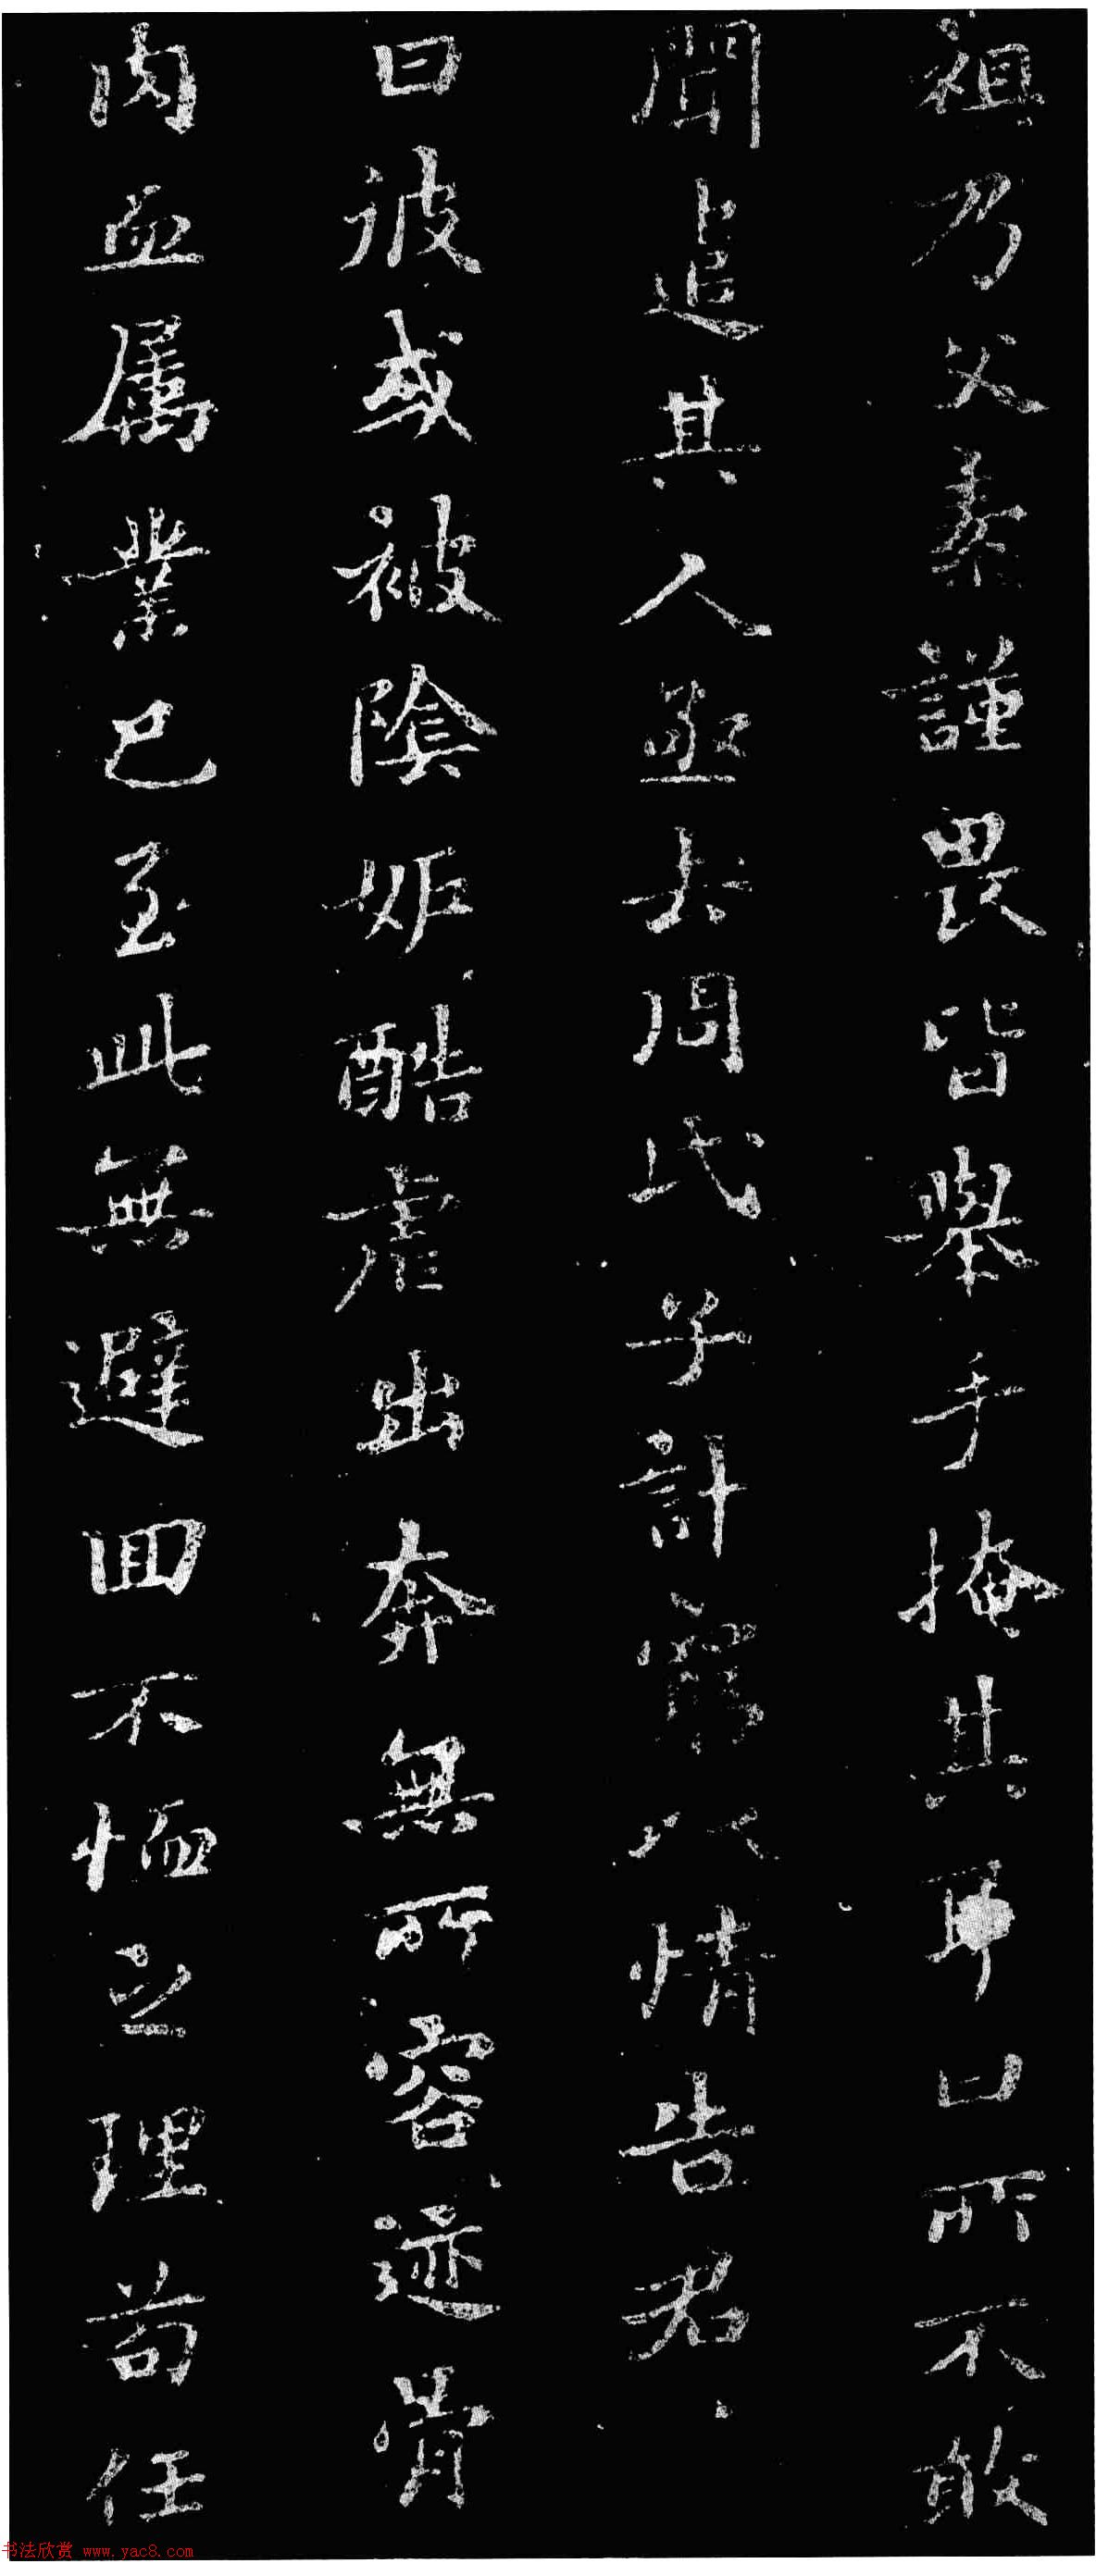 祖乃父素謹畏皆舉手掩其耳口所不敢
聞追其人亟去周氏子計窮以情告君
曰彼或被陰妒酷虐出奔無所容迹骨
肉血属業已至此無避回不恤之理苟任
书法欣赏 www.yac8.com